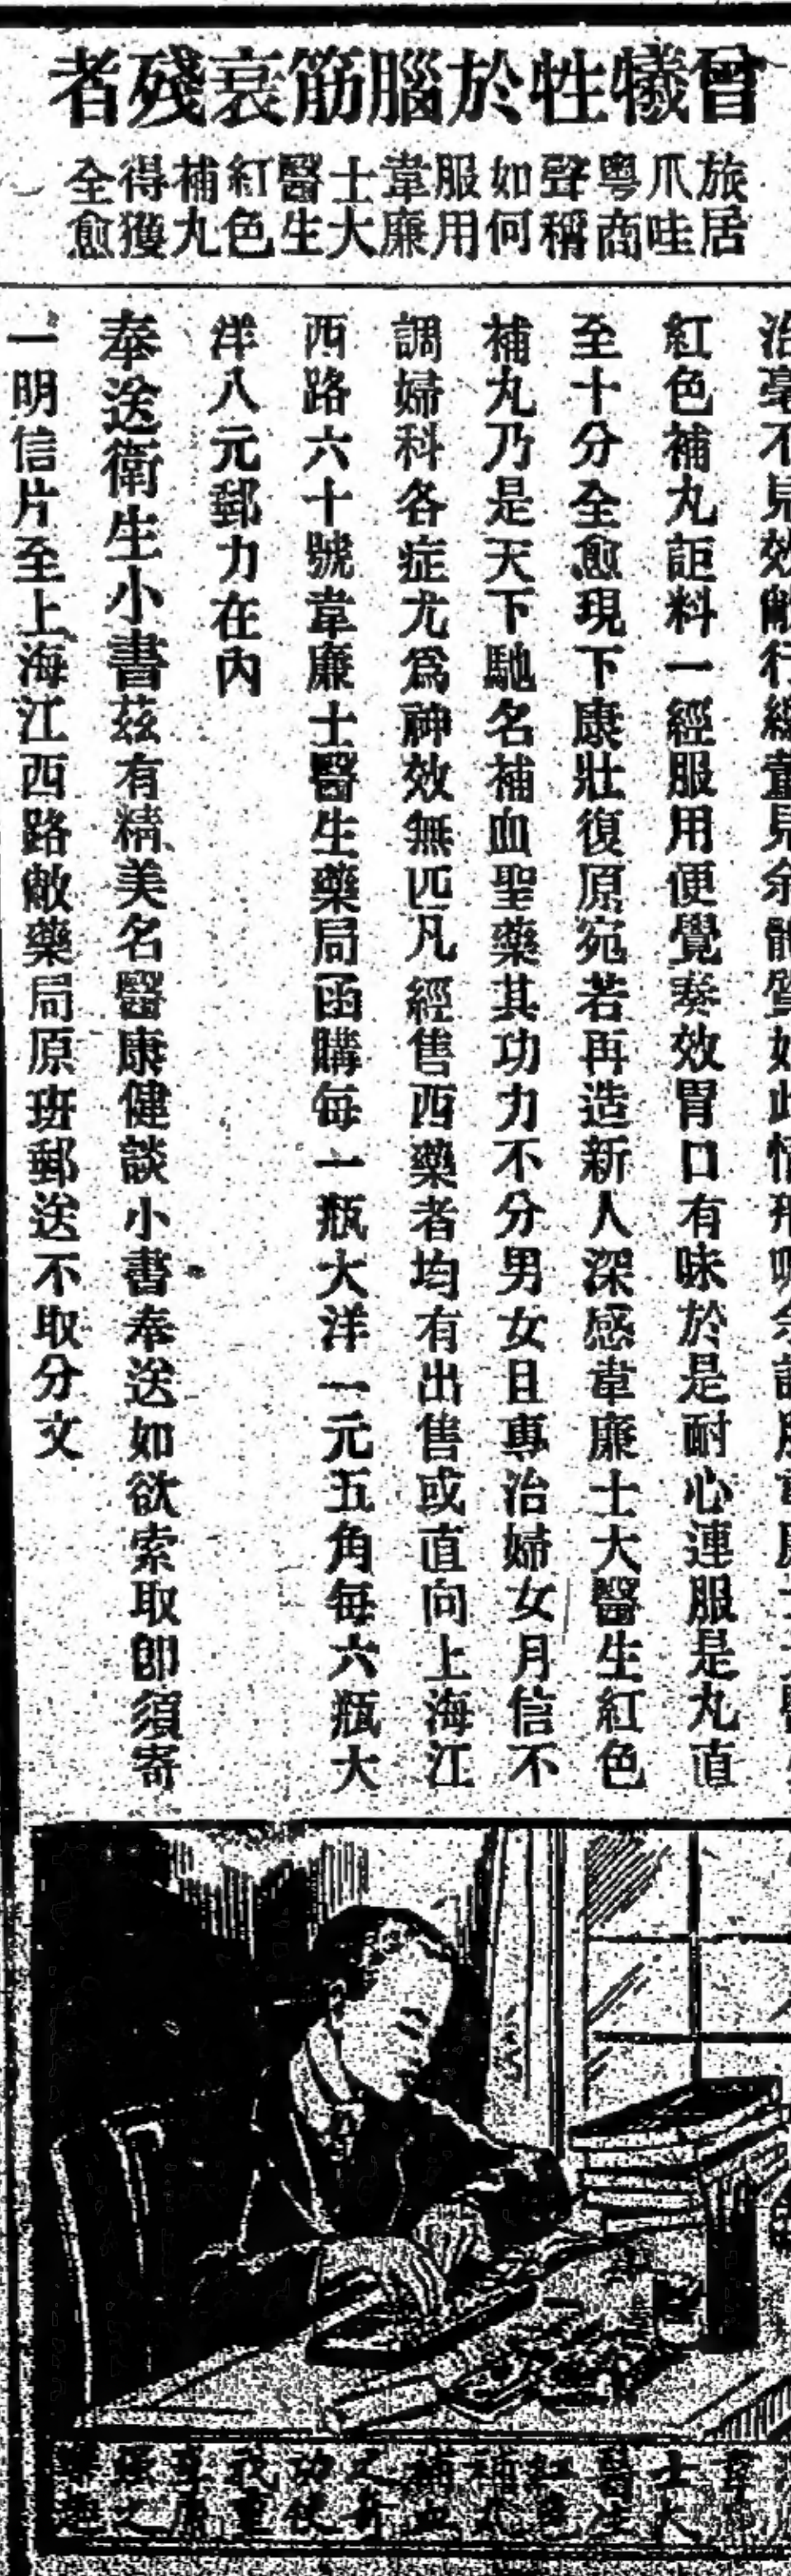 曾犧牲於腦筋衰殘者
旅居爪哇粵商聲稱如何服用韋廉士大醫生紅色補丸得獲全愈
治毫不見效
紅色補丸詎料一經服用便覺奏效胃口有味於是耐心連服是丸直
至十分全愈現下康壯復原宛若再造新人深感韋廉士大醫生紅色
補丸乃是天下馳名補血聖藥其功力不分男女且專治婦女月信不
調婦科各症尤爲神效無匹凡經售西藥者均有出售或直向上海江
西路六十號韋廉士醫生藥局函購每一瓶大洋一元五角每六瓶大
洋八元郵力在內
奉送衛生小書茲有精美名醫康健談小書奉送如欲索取卽須寄
一明信片至上海江西路敝藥局原班郵送不取分文